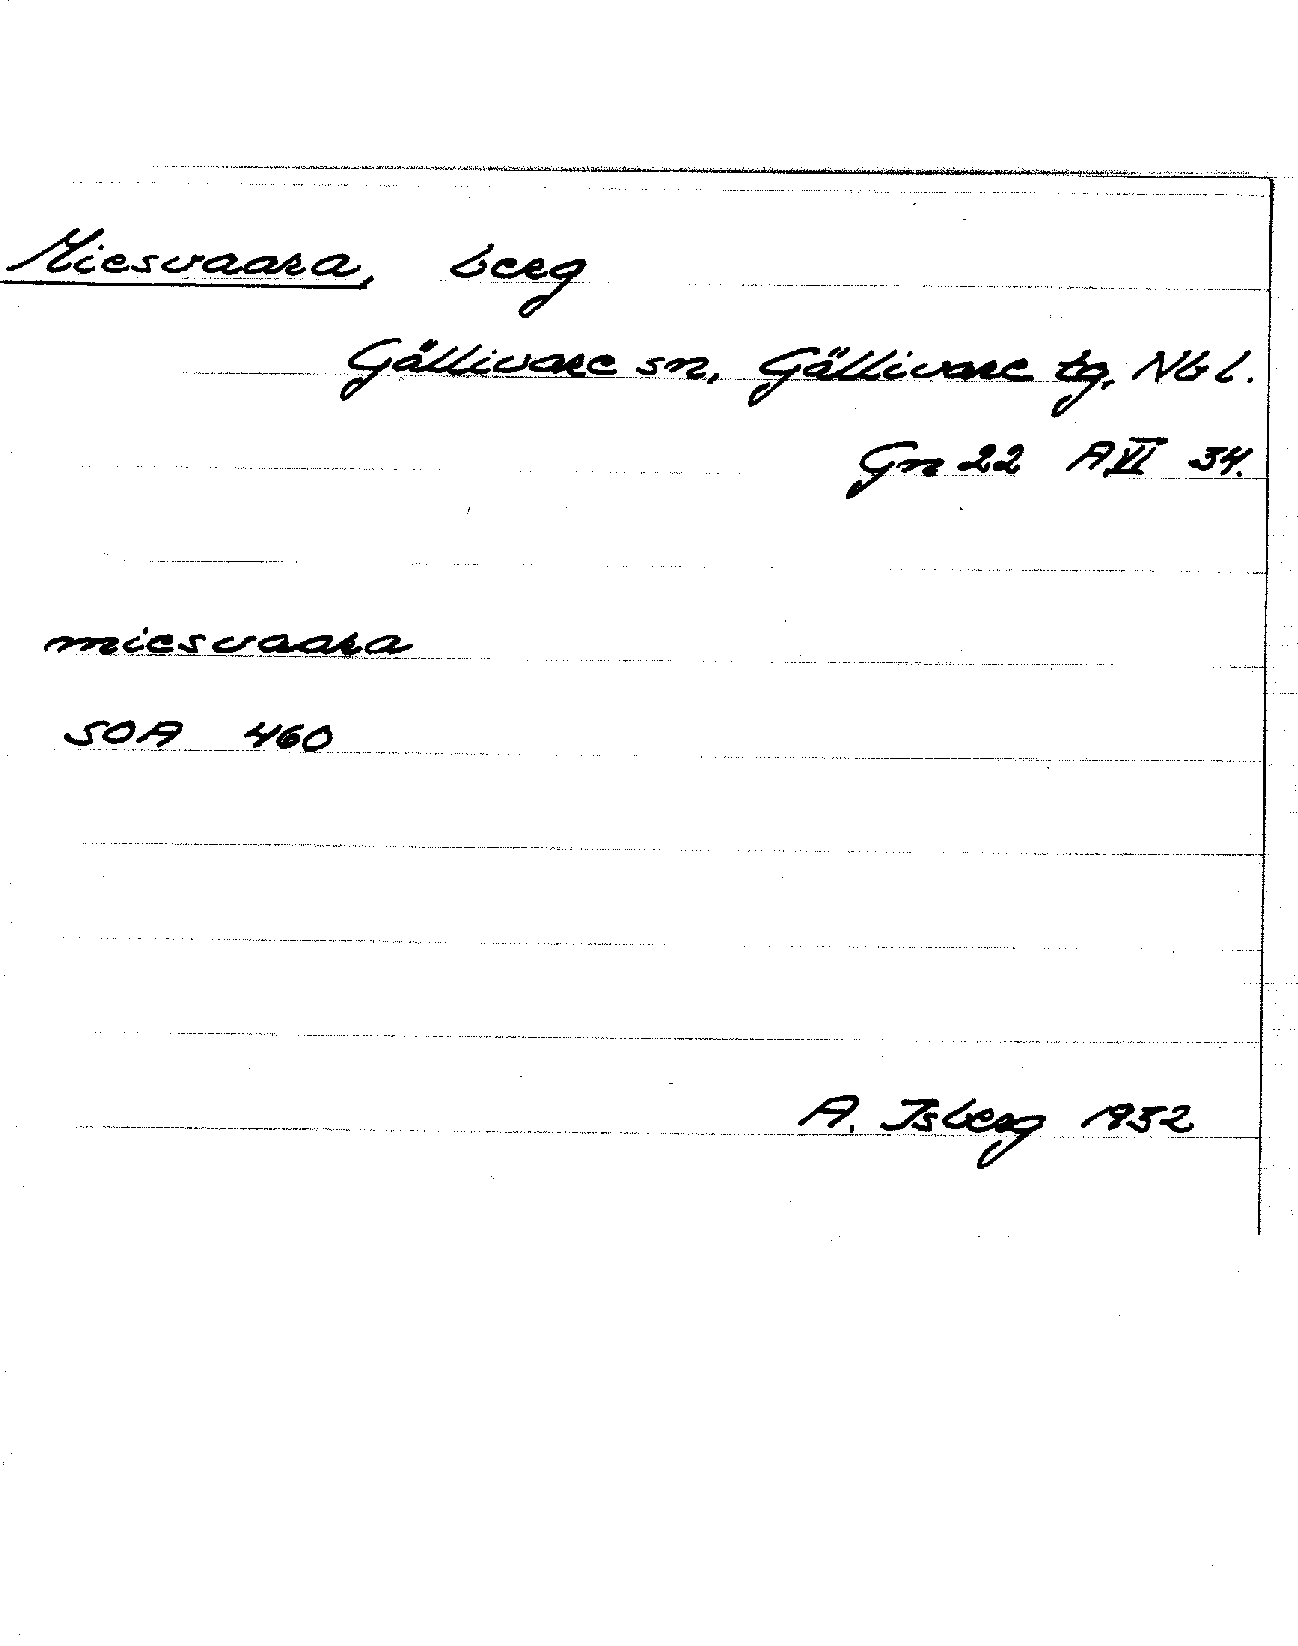 Miesvaara, berg
Gällivare sn, Gällivare tg, Nb l.
Gn 22 A VI 34.
miesvaara
SOA 460
A. Isberg 1932